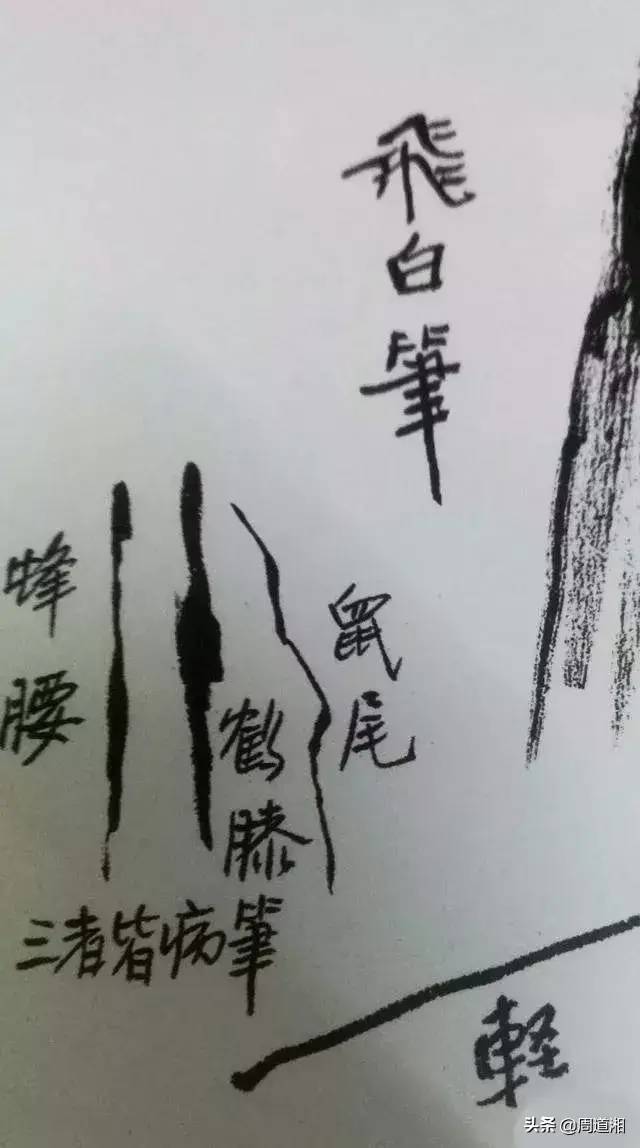 飛白筆
蜂腰
鶴膝
鼠尾
三者皆病筆
軽
头条 @周道湘